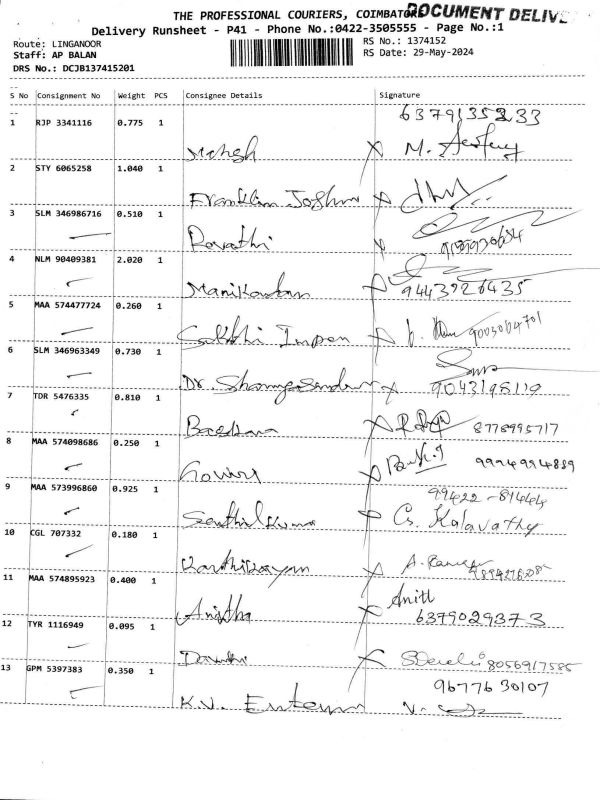 THE PROFESSIONAL COURIERS, COIMBATOR
DOCUMENT DELIVE
Delivery Runsheet - P41 - Phone No.:0422-3505555 - Page No.:1
Route: LINGANOOR
RS No.: 1374152
Staff: AP BALAN
RS Date: 29-May-2024
DRS No.: DCJB137415201
S No Consignment No Weight PCS Consignee Details Signature
6379135233
1 RJP 3341116 0.775 1
Mahesh M.
2 STY 6065258 1.040 1
Franklin Joshua
3 SLM 346986716 0.510 1
Revathi
4 NLM 90409381 2.020 1
Manikandan 9443926435
5 MAA 574477724 0.260 1
Sakthi Impex 9003064701
6 SLM 346963349 0.730 1
Dr. Shanmugasundaram 9043198119
7 TDR 5476335 0.810 1
Baskaran 8778995717
8 MAA 574098686 0.250 1
Gowri 9994994889
9 MAA 573996860 0.925 1
99422-81444
Senthilkumar Cs. Kalavathy
10 CGL 707332 0.180 1
Karthikeyan
11 MAA 574895923 0.400 1
Anitha
6379029373
12 TYR 1116949 0.095 1
8056917585
13 GPM 5397383 0.350 1
9677630107
K.V.